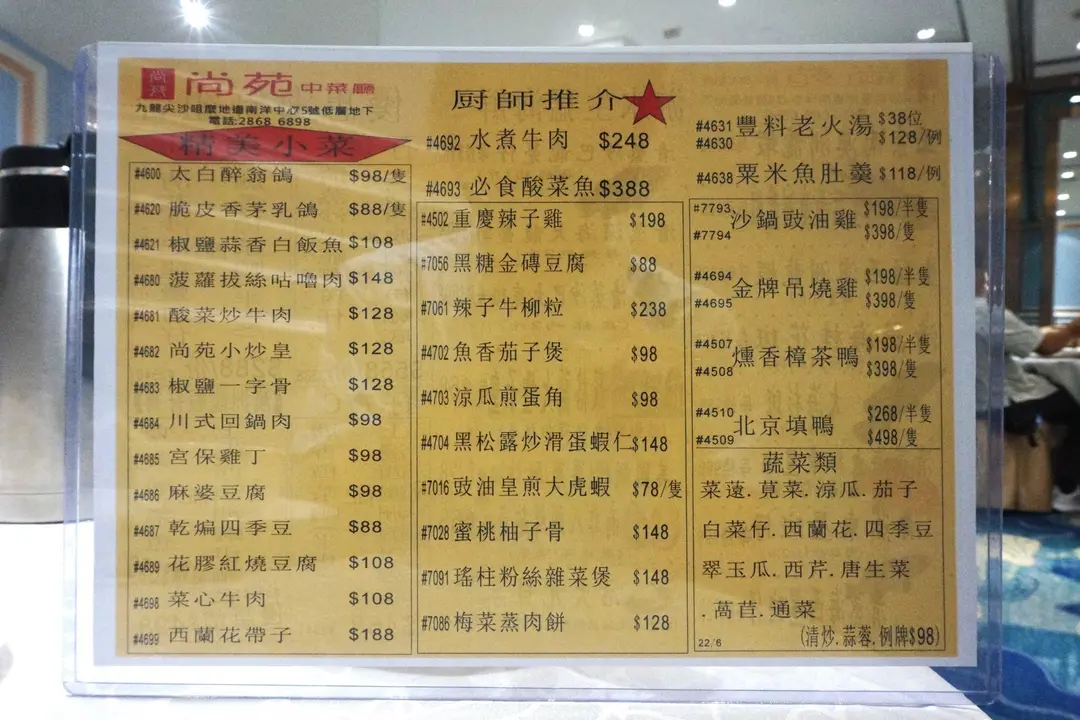 尚苑
尚苑中菜廳
九龍尖沙咀麼地道南洋中心75號低層地下
電話:2868 6898
精美小菜
#4600 太白醉翁鴿 $98/隻
#4620 脆皮香茅乳鴿 $88/隻
#4621 椒鹽蒜香白飯魚 $108
#4680 菠蘿拔絲咕嚕肉 $148
#4681 酸菜炒牛肉 $128
#4682 尚苑小炒皇 $128
#4683 椒鹽一字骨 $128
#4684 川式回鍋肉 $98
#4685 宮保雞丁 $98
#4686 麻婆豆腐 $98
#4687 乾煸四季豆 $88
#4689 花膠紅燒豆腐 $108
#4698 菜心牛肉 $108
#4699 西蘭花帶子 $188
厨師推介
#4692 水煮牛肉 $248
#4693 必食酸菜魚 $388
#4502 重慶辣子雞 $198
#7056 黑糖金磚豆腐 $88
#7061 辣子牛柳粒 $238
#4702 魚香茄子煲 $98
#4703 涼瓜煎蛋角 $98
#4704 黑松露炒滑蛋蝦仁 $148
#7016 豉油皇煎大虎蝦 $78/隻
#7028 蜜桃柚子骨 $148
#7091 瑤柱粉絲雜菜煲 $148
#7086 梅菜蒸肉餅 $128
#4631 豐料老火湯 $38位
#4630 $128/例
#4638 粟米魚肚羹 $118/例
#7793 沙鍋豉油雞 $198/半隻
#7794 $398/隻
#4694 金牌吊燒雞 $198/半隻
#4695 $398/隻
#4507 燻香樟茶鴨 $198/半隻
#4508 $398/隻
#4510 北京填鴨 $268/半隻
#4509 $498/隻
蔬菜類
菜薳.莧菜.涼瓜.茄子
白菜仔.西蘭花.四季豆
翠玉瓜.西芹.唐生菜
.萵苣.通菜
(清炒.蒜蓉.例牌$98)
22/6